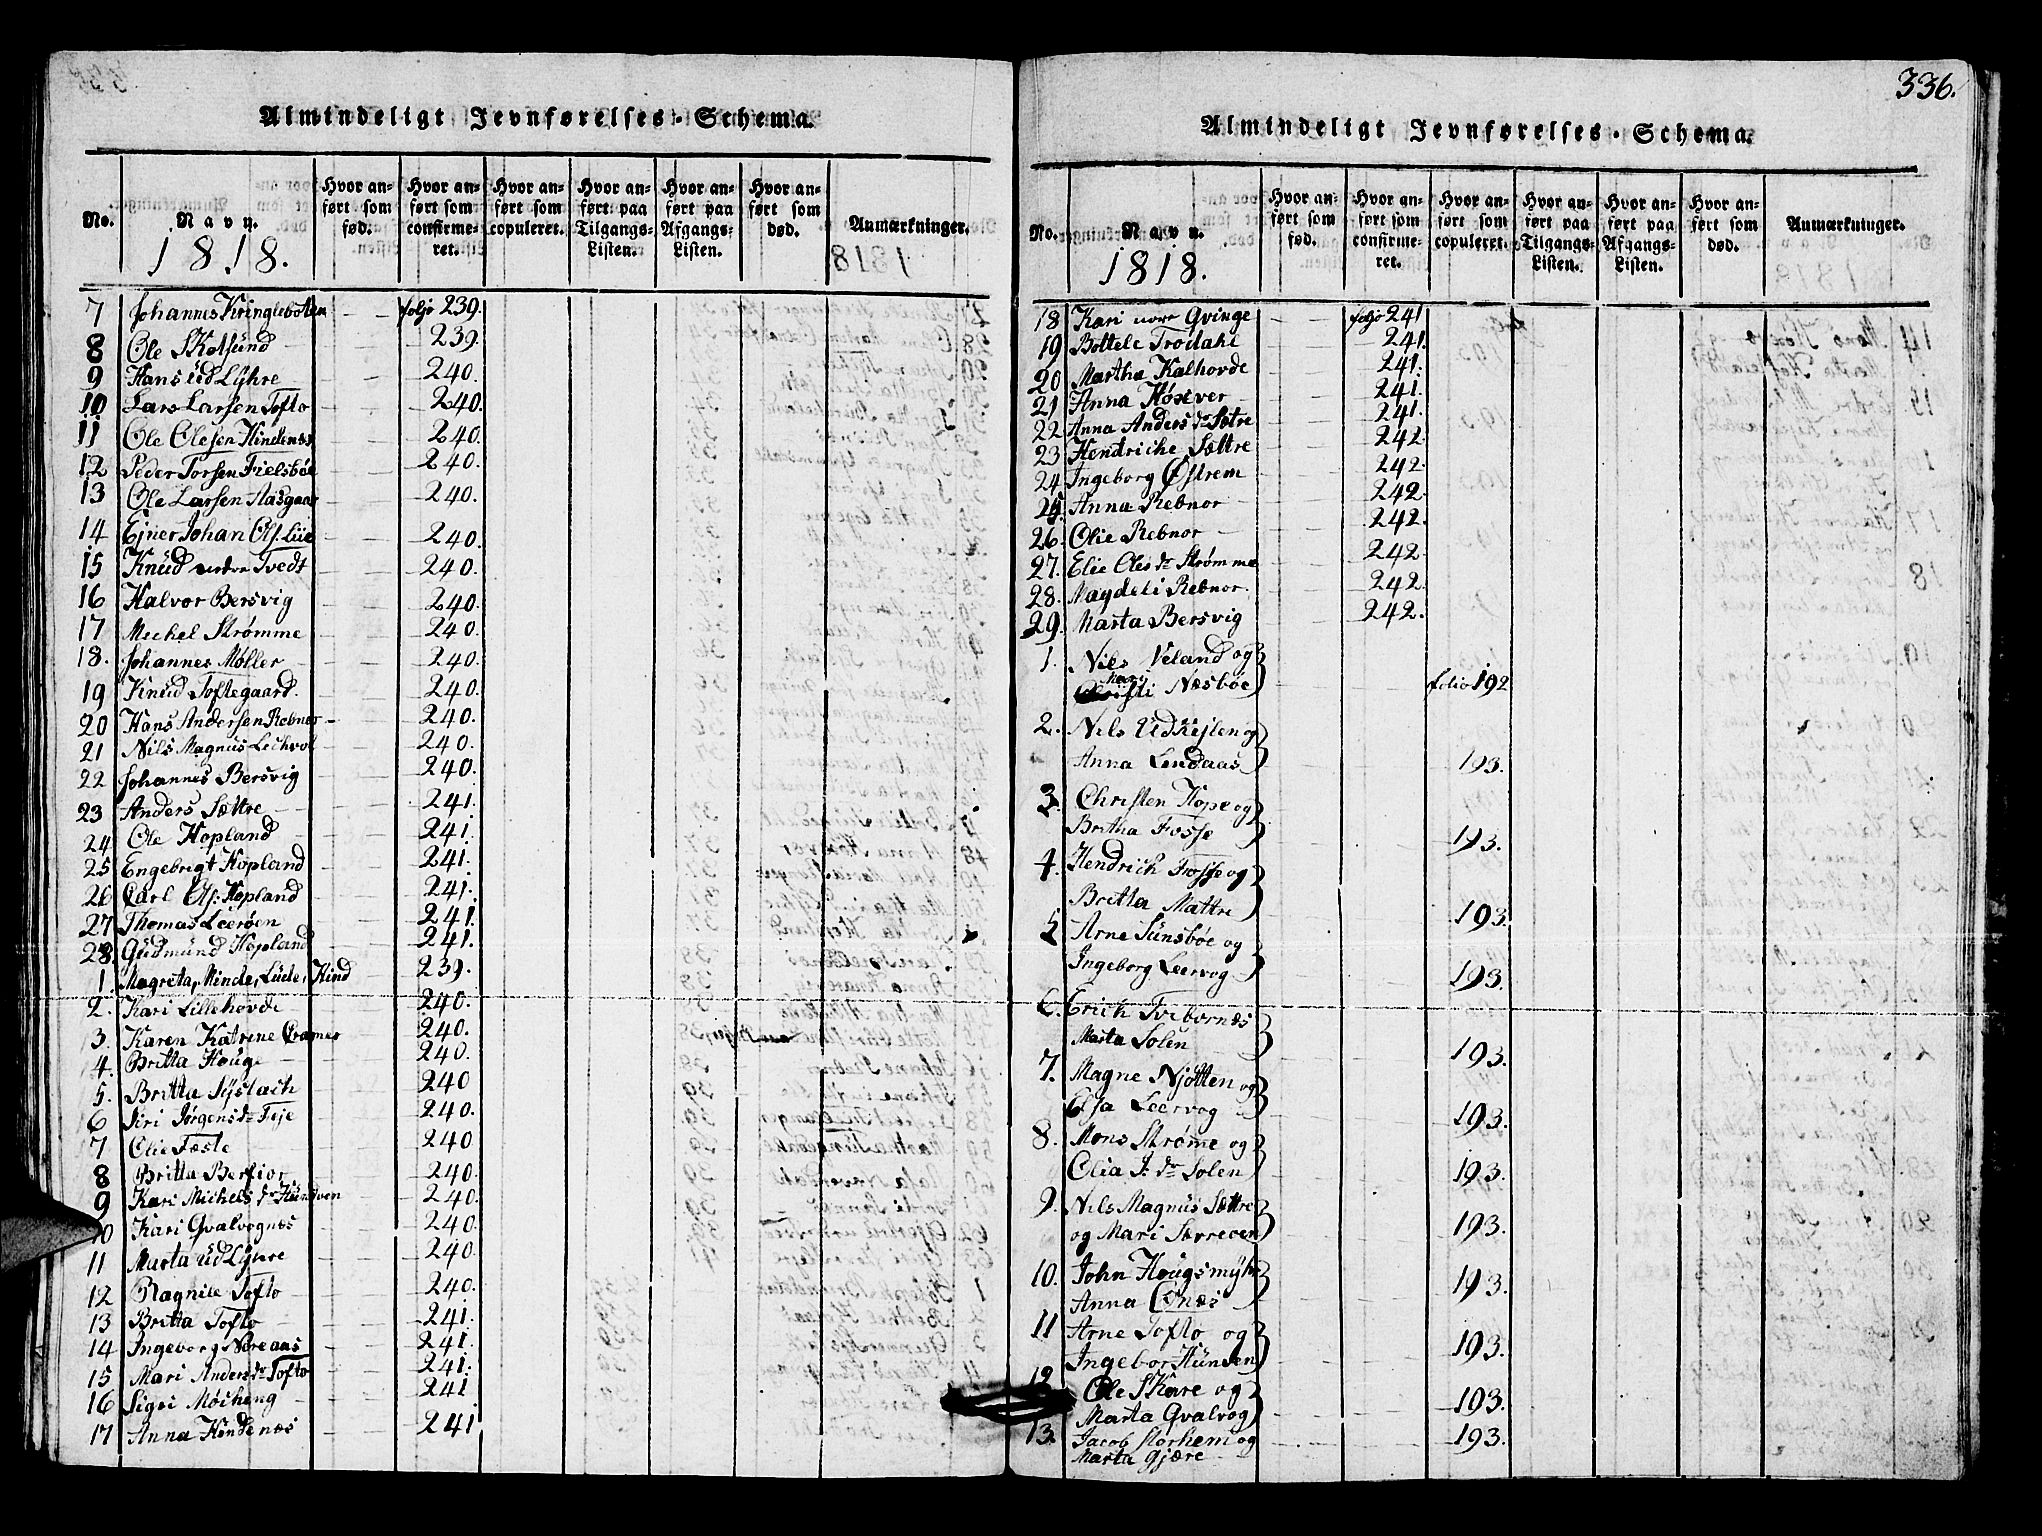 Almindeligt Jevnførelses-Schema.
No.
Navn.
Hvor anført som fød.
Hvor anført som confirmeret.
Hvor anført som copuleret.
Hvor anført paa Tilgangs-Listen.
Hvor anført paa Afgangs-Listen.
Hvor anført som død.
Anmærkninger.
1818.
7 Johannes Kringlebotten foljo 239.
8 Ole Skotsund 239.
9 Hans ud Lyhre 240.
10 Lars Larsen Tofto 240.
11 Ole Olesen Hindenæs 240.
12 Peder Torsen Fielsbøe 240.
13 Ole Larsen Aasgaar 240.
14 Ejner Johan Ols. Lüe 240.
15 Knud Tvedt 240.
16 Halvor Bersvig 240.
17 Mechel Strømme 240.
18. Johannes Møller 240.
19 Knud Toftegaard. 240.
20 Hans Andersen Rebnor 240.
21 Nils Magnus Lechvol 240.
22 Johannes Bersvig 240.
23 Anders Sættre 241.
24 Ole Hopland 241.
25 Engebrigt Hopland 241.
26 Carl Ols: Hopland 241.
27 Thomas Leerøen 241.
28. Gudmund Hopland 241.
1. Magreta, Minde, Lude, Hind 239.
2. Kari Lillehovde 240.
3. Karen Katrine Cramer 240.
4. Britta Houge 240.
5. Britta Syslach 240
6 Siri Jørgensdr Feje 240.
7 Olie Fæste 240
8 Britta Berfior 240.
9 Kari Michelsdr Hundven 240.
10 Kari Qvalvognæs 240
11 Marta ud Lyhre 240.
12 Ragnile Tofto 240.
13 Britta Tofto 241.
14 Ingeborg Nereaas 241.
15 Mari Andersdr Tofto 241.
16 Sigri Møcheng 241
17 Anna Hindenæs 241
336.
Almindeligt Jevnførelses-Schema.
No.
Navn.
Hvor anført som fød.
Hvor anført som confirmeret.
Hvor anført som copuleret.
Hvor anført paa Tilgangs-Listen.
Hvor anført paa Afgangs-Listen.
Hvor anført som død.
Anmærkninger.
1818.
18 Kari Qvinge foljo 241
19 Bottele Trodahl 241.
20 Martha Kalhovde 241.
21 Anna Høsever 241.
22 Anna Andersdr Sætre 241.
23 Hendriche Sættre 242.
24 Ingeborg Østrem 242.
25 Anna Rebnor 242.
26. Olie Rebnor 242.
27. Elie Olesdr Strømme 242.
28. Magdeli Rebnor. 242.
29. Marta Bersvig 242.
1. Nils Veland og
Mari Næsbøe folio 192
2. Nils Udkejlen og
Anna Lendaas 193.
3. Christen Hope og
Britha Fosse 193.
4. Hendrich Fosse og
Britta Mattre 193.
5 Arne Sunsbøe og
Ingeborg Leervog 193.
6. Erich Tvebornæs
Marta Solen 193.
7. Magne Njotten og
Elsa Leervog 193.
8. Mons Strøme og
Olia J: dr Solen 193.
9. Nils Magnus Sættre
og Mari Særeven 193.
10. John Hougsmyhr
Anna Ognæs 193.
11 Arne Tofto og
Ingebor Hunden 193.
12 Ole Skare og
Marta Qvalvog 193.
13. Jacob Storhem og 193.
Marta Gjære